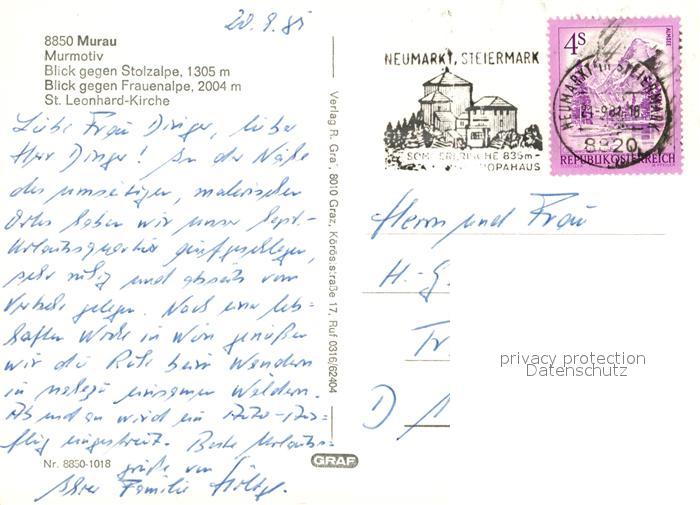 20.9.81
8850 Murau
Murmotiv
Blick gegen Stolzalpe, 1305 m
Blick gegen Frauenalpe, 2004 m
St. Leonhard-Kirche
Liebe Frau Dinger, lieber
Herr Dinger! In der Nähe
des umseitigen, malerischen
Ortes haben wir unser Sept.-
Urlaubsquartier aufgeschlagen,
sehr ruhig und abseits vom
Verkehr gelegen. Nach einer leb-
haften Woche in Wien genießen
wir die Ruhe beim Wandern
in nahezu einsamen Wäldern.
Ab und an wird ein
flug eingestreut. Beste Urlaubs-
grüße von
Ihrer Familie
Nr. 8850-1018
GRAF
Verlag R. Graf, 8010 Graz, Körösistraße 17, Ruf 0316/62404
NEUMARKT, STEIERMARK
SOMMERFRISCHE 835m-
EUROPAHAUS
4S
ALMSEE
NEUMARKT IN STEIERMARK
8820
REPUBLIK ÖSTERREICH
Herrn und Frau
H.-G.
Tr
D
privacy protection
Datenschutz